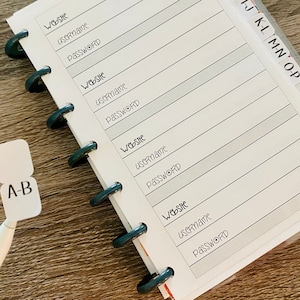 website
username
password
website
username
password
website
username
password
website
username
password
IJ
KL
MN
OP
A-B